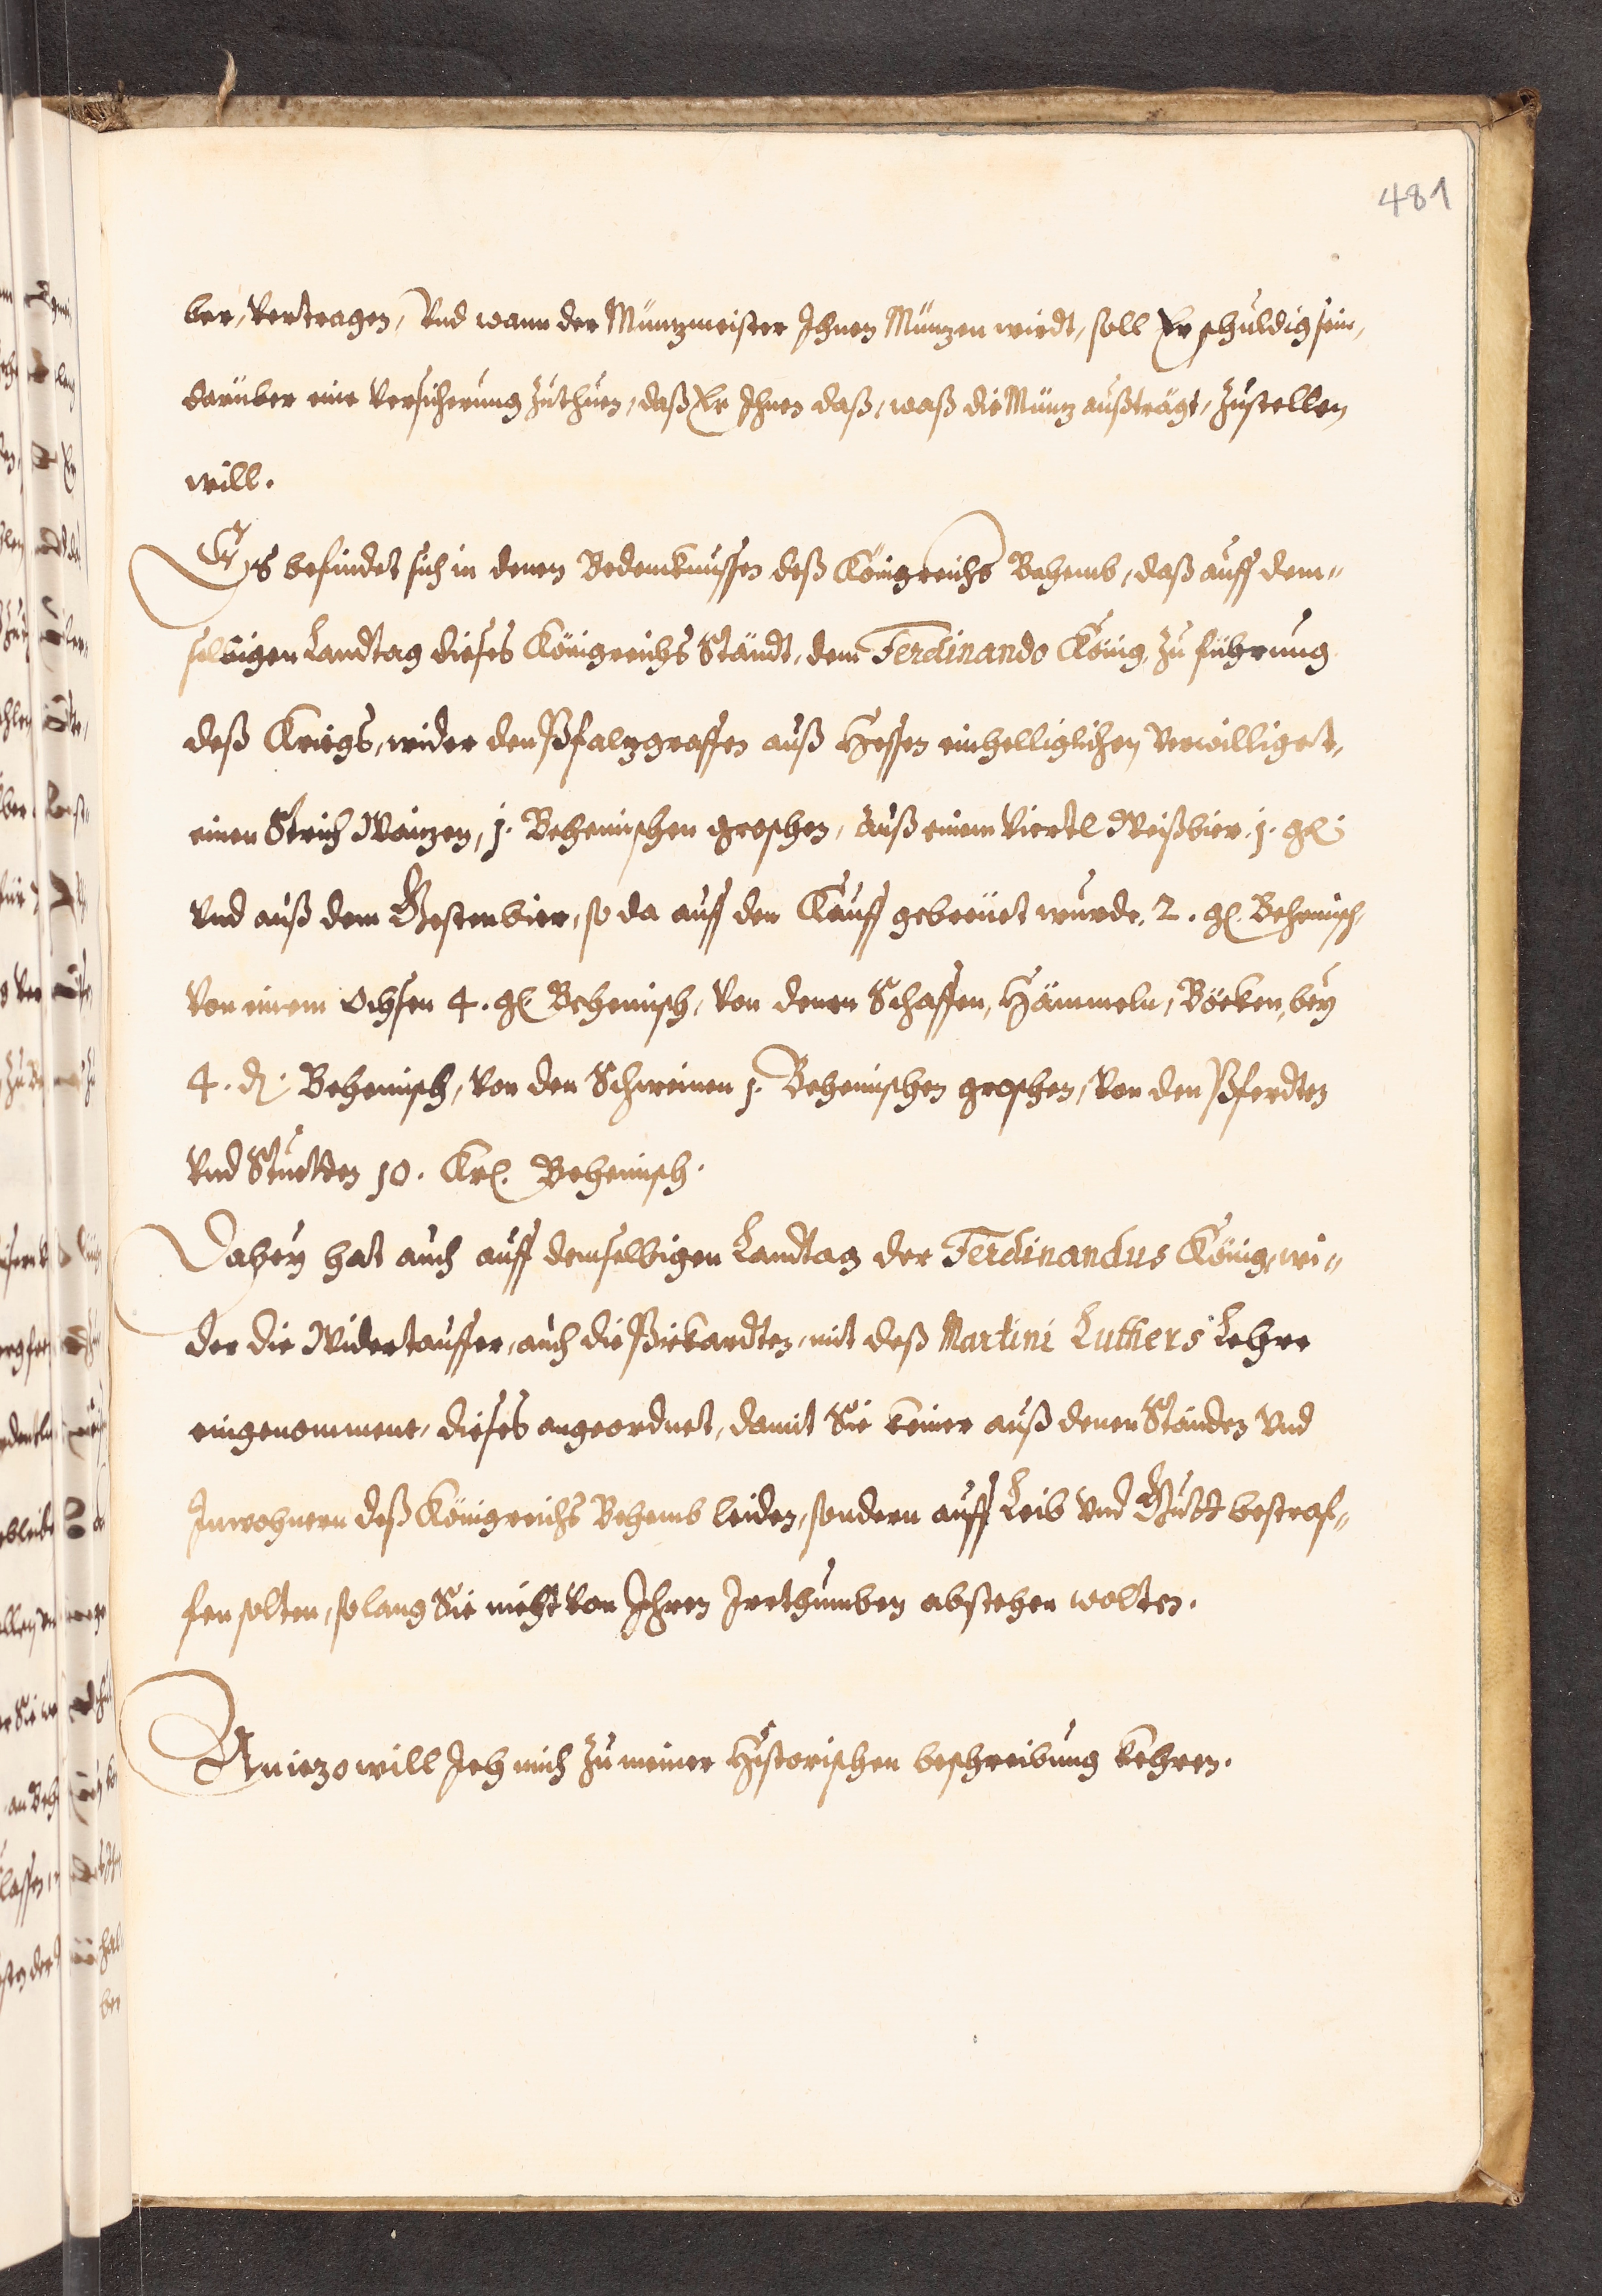 481
ber, vertragen, Vnd wann der Müntzmeister Ihnen Müntzen wirdt, soll Er schuldig sein,
darüber eine versicherung zuthuen, daß Er Ihnen daß, waß die Müntz außträgt, zustellen
will.
Es befindet sich in denen Bedencknussen deß Königreichs Behemb, daß auff dem„
selbigen Landtag dieses Königreichs Ständt, dem Ferdinando König, zu führung
deß Kriegs, wider den Pfaltzgraffen auß Hessen einhelliglichen verwilliget,
einen Strich Waitzen, 1. Behemischen groschen, auß einem Viertl Weißbier 1. gl:
Vnd auß dem Gerstenbier, so da auff den Kauff gebreüet wurde, 2. gl. Behemisch,
Von einem Ochsen 4. gl. Behemisch, Von denen Schaffen, Hämmeln, Böcken, bey
4. d. Behemisch, von den Schweinen 1. Behemischen groschen, von den Pferdten
Vnd Stuetten 10. Krl. Behemisch.
Dabey hat auch auff demselbigen Landtag der Ferdinandus König, wi„
der die Widertauffer, auch die Pickardten, mit deß Martini Luthers Lehre
eingenommene, dieses angeordnet, damit Sie keiner auß denen Ständen Vnd
Inwohnern deß Königreichs Behemb leiden, sondern auff Leib Vnd Gutt bestraf„
fen solten, so lang Sie nicht von Ihren Irrthumben abstehen wolten.
Aniezo will Ich mich zu meiner Historischen beschreibung kehren.